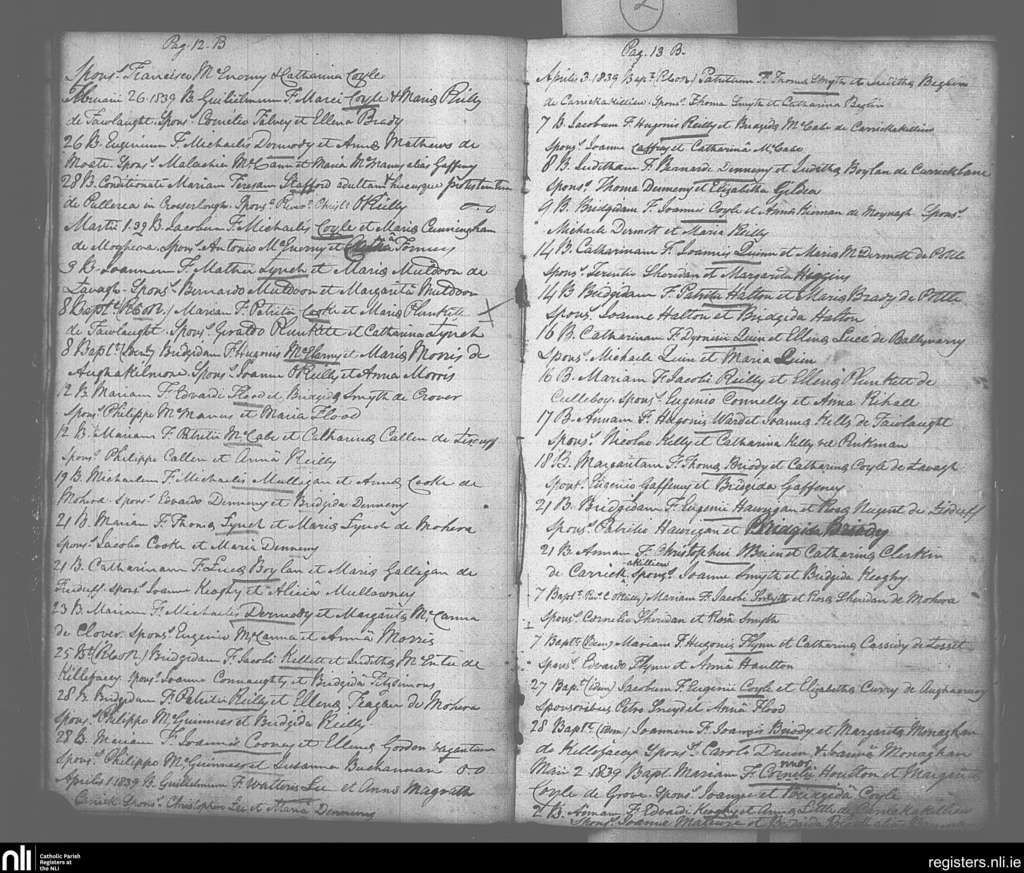 2
Pag. 12. B
Spons.s Francisco McEnomy & Catharina Coyle
Februarii 26. 1839 B. Guilielmum F. Marci Coyle & Maria Reilly
de Fawlaught. Spons.s Cornelio Talvey et Ellena Brady
26 B. Eugenium F. Michaelis Dermody et Anna Mathews de
Moate. Spons.s Malachia McCann et Maria McGranny alias Gaffeny
28 B. Conditionate Mariam Teresam Stafford adultam hucusque protestantem
de Pullerea in Crosserlough. Spons.s O'Reilly 0..0
Martii 1. 39 B. Jacobum F. Michaelis Coyle et Maria Cunningham
de Moghera. Spons.s Antonio McGurny et Torney
3 B. Joannem F. Mathei Lynch et Maria Muldoon de
Lavagh. Spons.s Bernardo Muldoon et Margarita Muldoon
8 Bapt. Mariam F. Patritii Cooke et Maria Plunkett
de Fawlaught. Spons.s Geraldo Plunkett et Catharina Lynch
8 Bapt.t Bridgidam F. Hugonis et Maria Morris de
Aughakilmore Spons.s Joanne O'Reilly et Anna Morris
12 B. Mariam F. Edvardi Flood et Bridgida Smyth de Crover
Spons.s Philippo McManus et Maria Flood
12 B. Mariam F. Patritii McCabe et Catharina Callen de
Spons.s Philippo Callen et Anna Reilly
19 B. Michaelem F. Michaelis Mulligan et Anna Cooke de
Mohera Spons.s Edvardo Denneny et Bridgida Denneny
21 B. Mariam F. Thoma Lynch et Maria Lynch de Mohera
Spons.s Jacobo Cooke et Maria Denneny
21 B. Catharinam F. Luca Boylan et Maria Galligan de
Spons.s Joanne Keoghy et Alicia Mullawney
23 B. Mariam F. Michaelis Dermody et Margarita McCanna
de Clover. Spons.s Eugenio McCanna et Anna Morris
25 Bridgidam F. Jacobi Kellett et Juditha McEntee de
Killefacey Spons.s Joanne Connaughty et Bridgida Fitzsimons
28 B. Bridgidam F. Patritii Reilly et Ellena Feagan de Mohera
Spons.s Philippo McGuinness et Bridgida Reilly
28 B. Mariam F. Joannis Cooney et Ellena Gordon vagantium
Spons.s Philippo McGuinness et Susanna Buchannan 0..0
Aprilis 1 1839 B. Guilielmum F. Walteri Lee et Anna Magrath
Carrick Spons.s Christophoro Lee et Maria Denneny
Pag. 13 B.
Aprilis 3. 1839 Bapt. Patritium F. Thoma Smyth et Juditha Beglin
de Carrickakillew. Spons.s Thoma Smyth et Catharina Beglin
7 B. Jacobum F. Hugonis Reilly et Bridgida McCabe de Carrickakillew
Spons.s Joanne Caffrey et Catharina McCabe
8 B. Juditham F. Bernardi Denneny et Juditha Boylan de Carrickbane
Spons.s Thoma Denneny et Elizabitha Gildea
9 B. Bridgidam F. Joannis Coyle et Anna Kiernan de Moynagh Spons.s
Michaele Dermott et Maria Reilly
14 B. Catharinam F. Joannis Quinn et Maria McDermott de Pottle
Spons.s Terentio Sheridan et Margarita Higgins
14 B Bridgidam F. Patritii Halton et Maria Brady de Pottle
Spons.s Joanne Halton et Bridgida Halton
16 B. Catharinam F. Dyonisii Quin et Ellena Luce de Ballynarry
Spons.s Michaele Quin et Maria Quin
16 B. Mariam F. Jacobi Reilly et Ellena Plunkett de
Culleboy. Spons.s Eugenio Connelly et Anna Rihall
17 B. Annam F. Hugonis Ward et Joanna Kells de Fawlaught
Spons.s Nicolao Kelly et Catharina Kelly vel Pinkman
18 B. Margaritam F. Thoma Briody et Catharina Coyle de Lavagh
Spons.s Eugenio Gaffeney et Bridgida Gaffeney
21 B. Bridgidam F. Eugenii Hawigan et Rosa Nugent de Lisduff
Spons.s Patritio Hawigan et Bridgida Briody
21 B. Annam F. Christophori O'Brien et Catharina Clerkin
de Carrickakillew. Spons.s Joanne Smyth et Bridgida Keoghy
7 Bapt. Mariam F. Jacobi Smyth et Rosa Sheridan de Mohera
Spons.s Cornelio Sheridan et Rosa Smyth
7 Bapt.t (Idem) Mariam F. Hugonis Flynn et Catharina Cassidy de Losset
Spons.s Edvardo Flynn et Anna Haulton
27 Bapt.t (idem) Jacobum F. Eugenii Coyle et Elizabitha Curry de Aughaconny
Sponsoribus Petro Sneyd et Anna Flood
28 Bapt.t (Idem) Joannem F. Joannis Briody et Margarita Monaghan
de Killefacey Spons.s Carolo & Joanna Monaghan
Maii 2 1839 Bapt Mariam F. Cornelii Houlton et Margarita
Coyle de Grove. Spons.s Joanne et Bridgida Coyle
2 B. Annam F. Edvardi Keoghy et Anna de Carrickakillew
nli
Catholic Parish
Registers at
the NLI
registers.nli.ie